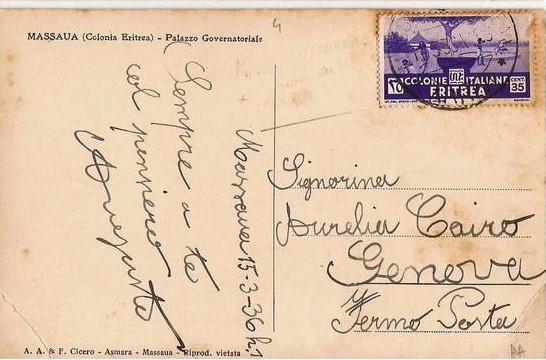 MASSAUA (Colonia Eritrea) - Palazzo Governatoriale
4
Sempre a te
col pensiero
Augusto
Massaua 15-3-36
COLONIE ITALIANE
ERITREA
CENT 35
Signorina
Aurelia Cairo
Genova
Fermo Posta
A. A. & F. Cicero - Asmara - Massaua - Riprod. vietata